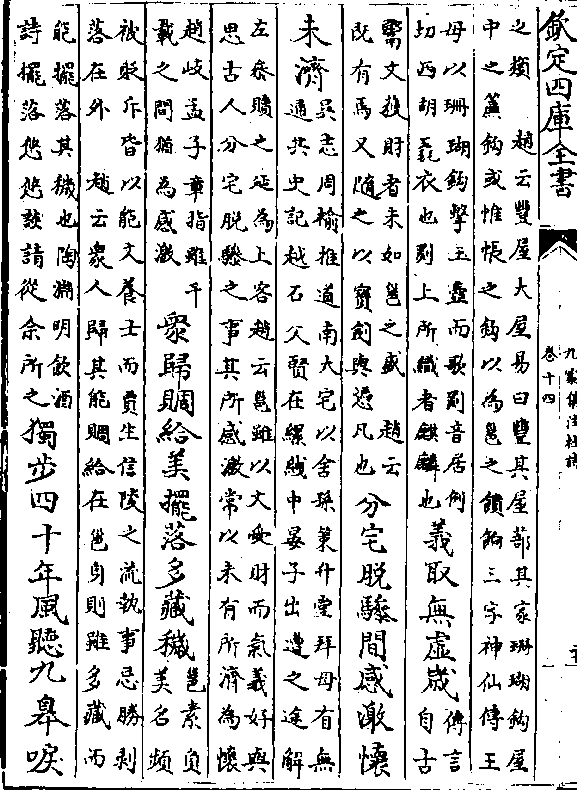 欽定四庫全書
九家集注杜詩
卷十四
之類 趙云豐屋大屋易曰豐其屋蔀其家珊瑚鈎屋
中之簾鈎或帷帳之鈎以為邕之饋餉三字神仙傳王
母以珊瑚鈎擊玉壺而歌罽音居例
切西胡毳衣也罽上所織者麒麟也
義取無虛歲
傳言
自古
鬻文獲財者未如邕之盛 趙云
既有馬又隨之以寶劍與憑几也
分宅脫驂間感激懷
未濟
吳志周瑜推道南大宅以舍孫策升堂拜母有無
通共史記越石父賢在縲紲中晏子出遭之途解
左驂贖之延為上客趙云邕雖以文受財而氣義好與
思古人分宅脫驂之事其所感激常以未有所濟為懷
趙岐孟子章指雖千
載之間猶為感激
衆歸賙給美擺落多藏穢
邕素負
美名頻
被貶斥皆以能文養士而賈生信陵之流執事忌勝剥
落在外 趙云衆人歸其能賙給在邕身則雖多藏而
能擺落其穢也陶淵明飲酒
詩擺落悠悠談請從余所之
獨步四十年風聽九皋唳